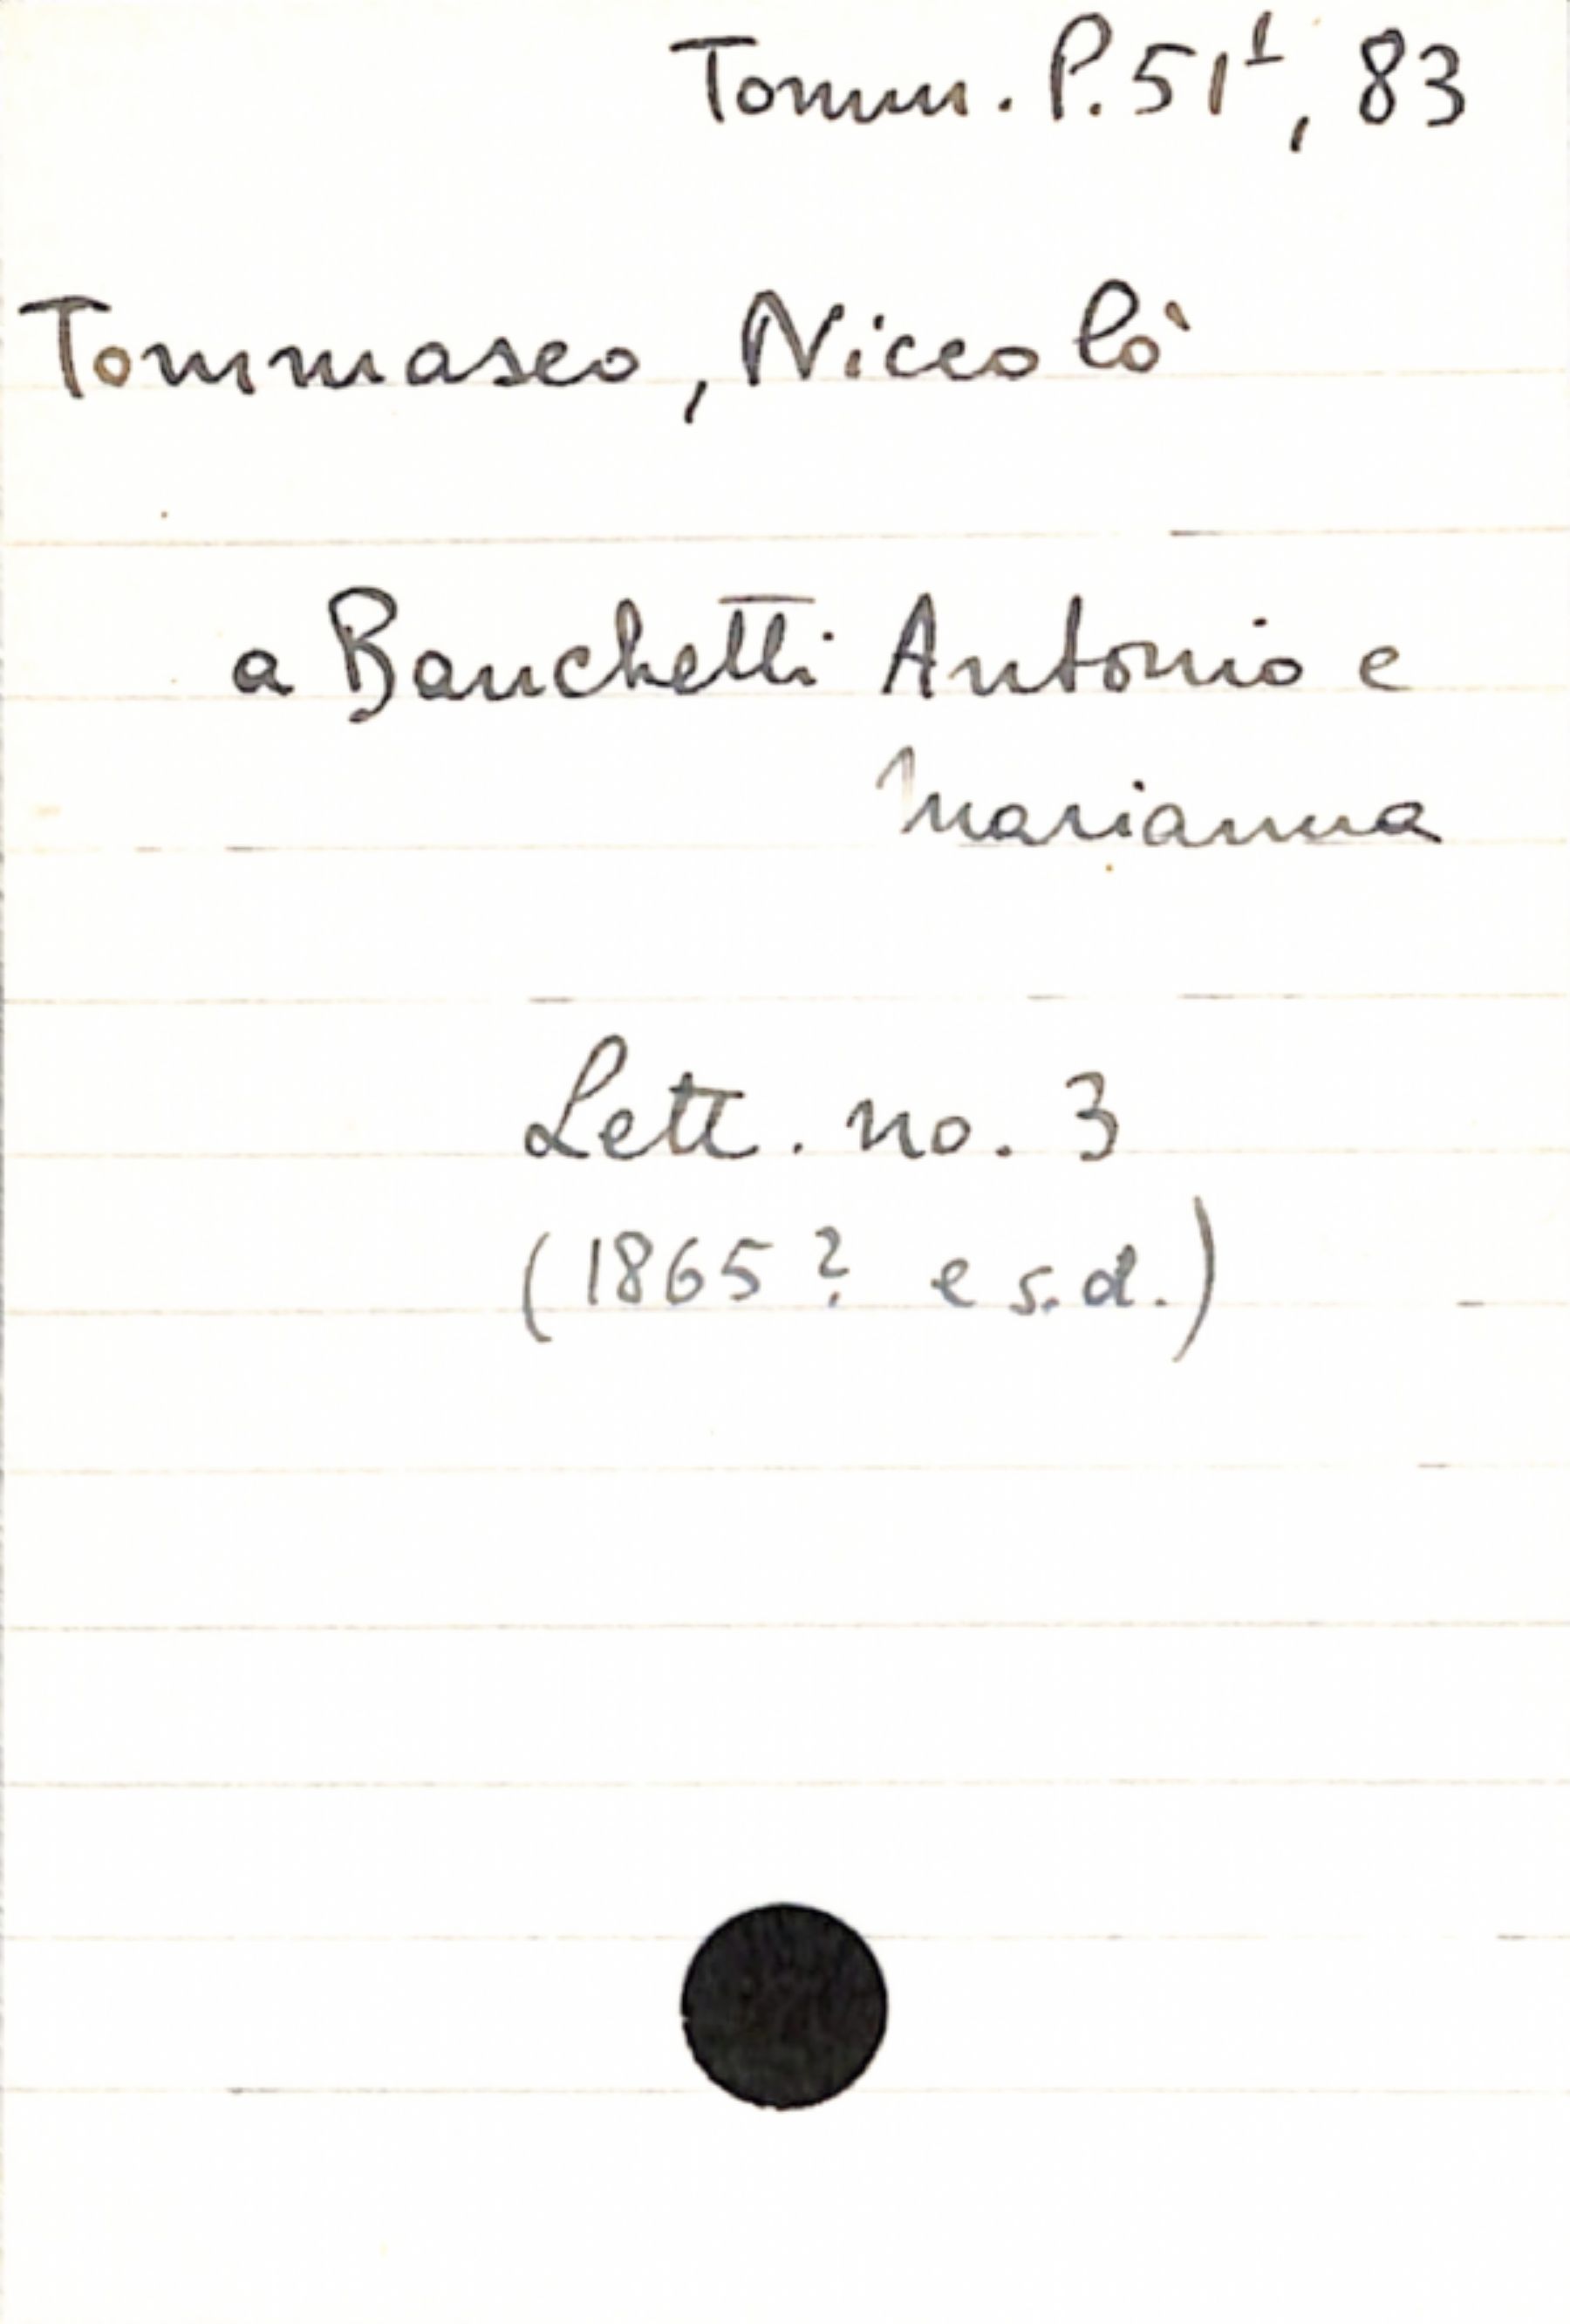 Tomm. P. 51¹, 83
Tommaseo, Niccolò
a Banchetti Antonio e
Marianna
Lett. no. 3
(1865? e s.d.)